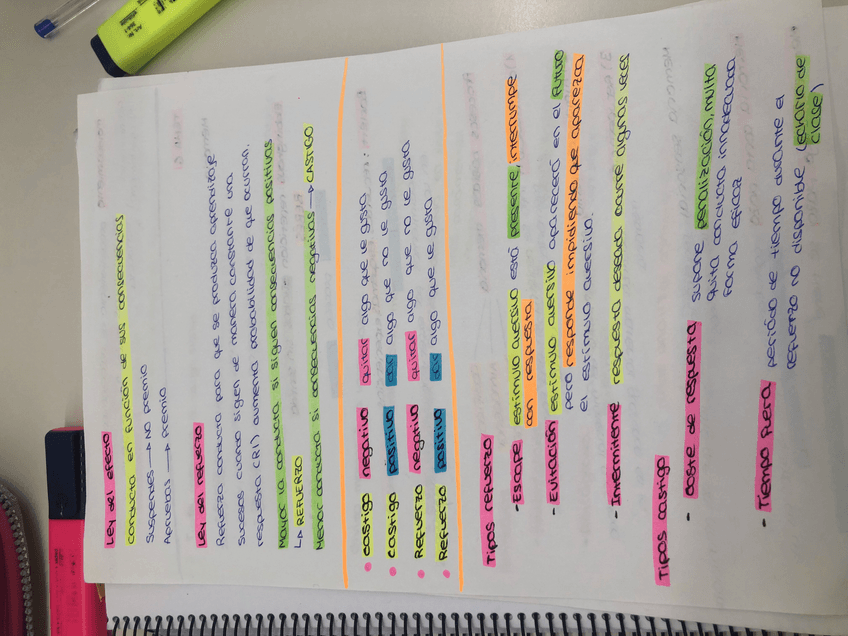 Ley del efecto
conducta en función de sus consecuencias
Suspendes → No premio
Apruebas → Premio
Ley del refuerzo
Refuerza conducta para que se produzca aprendizaje
Sucesos cuando siguen de manera constante una
respuesta (R1) aumenta probabilidad de que ocurran.
Mayor la conducta si siguen consecuencias positivas
↳ REFUERZO
Menor conducta si consecuencias negativas → CASTIGO
• castigo negativo quitar algo que le gusta.
• castigo positivo dar algo que no le gusta
• Refuerzo negativo quitar algo que no le gusta
• Refuerzo positivo dar algo que le gusta
Tipos refuerzo
- Escape estímulo aversivo está presente, interrumpe
con respuesta
- Evitación estímulo aversivo aparecerá en el futuro
pero responde impidiendo que aparezca
el estímulo aversivo.
- Intermitente respuesta deseada ocurre algunas veces
Tipos castigo
- coste de respuesta supone penalización, multa
quita conducta inadecuada
forma eficaz
- Tiempo fuera periódo de tiempo durante el
refuerzo no disponible (echarlo de
clase)